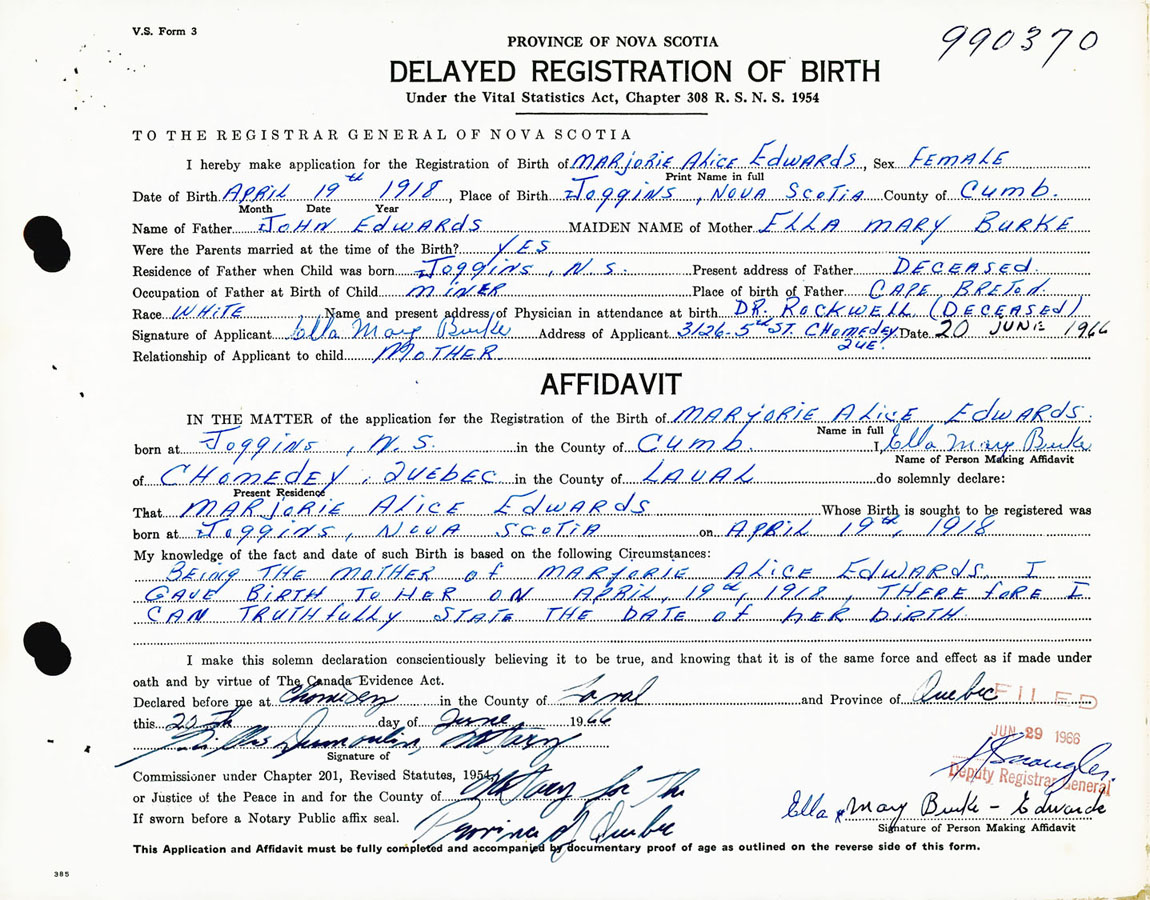 V.S. Form 3
990370
PROVINCE OF NOVA SCOTIA
DELAYED REGISTRATION OF BIRTH
Under the Vital Statistics Act, Chapter 308 R. S. N. S. 1954
TO THE REGISTRAR GENERAL OF NOVA SCOTIA
I hereby make application for the Registration of Birth of MARJORIE ALICE EDWARDS, Sex FEMALE
Print Name in full
Date of Birth APRIL 19th 1918, Place of Birth JOGGINS, NOVA SCOTIA County of CUMB.
Month Date Year
Name of Father JOHN EDWARDS MAIDEN NAME of Mother ELLA MARY BURKE
Were the Parents married at the time of the Birth? YES
Residence of Father when Child was born JOGGINS, N.S. Present address of Father DECEASED.
Occupation of Father at Birth of Child MINER Place of birth of Father CAPE BRETON.
Race WHITE Name and present address of Physician in attendance at birth DR. ROCKWELL (DECEASED)
Signature of Applicant Ella Mary Burke Address of Applicant 3126-5th ST. CHOMEDEY Date 20 JUNE 1966
QUE.
Relationship of Applicant to child MOTHER
AFFIDAVIT
IN THE MATTER of the application for the Registration of the Birth of MARJORIE ALICE EDWARDS.
Name in full
born at JOGGINS, N.S. in the County of CUMB. I, Ella Mary Burke
Name of Person Making Affidavit
of CHOMEDEY, QUEBEC in the County of LAVAL do solemnly declare:
Present Residence
That MARJORIE ALICE EDWARDS Whose Birth is sought to be registered was
born at JOGGINS, NOVA SCOTIA on APRIL 19th, 1918
My knowledge of the fact and date of such Birth is based on the following Circumstances:
BEING THE MOTHER OF MARJORIE ALICE EDWARDS, I
GAVE BIRTH TO HER ON APRIL, 19th, 1918, THERE FORE I
CAN TRUTHFULLY STATE THE DATE OF HER BIRTH
I make this solemn declaration conscientiously believing it to be true, and knowing that it is of the same force and effect as if made under
oath and by virtue of The Canada Evidence Act.
Declared before me at Chomedey in the County of Laval and Province of Quebec
FILED
this 20th day of June 1966
JUN 29 1966
Dumoulin Notary
Signature of
Deputy Registrar General
Commissioner under Chapter 201, Revised Statutes, 1954,
or Justice of the Peace in and for the County of Notary for the
Ella Mary Burke - Edwards
If sworn before a Notary Public affix seal. Province of Quebec
Signature of Person Making Affidavit
This Application and Affidavit must be fully completed and accompanied by documentary proof of age as outlined on the reverse side of this form.
385